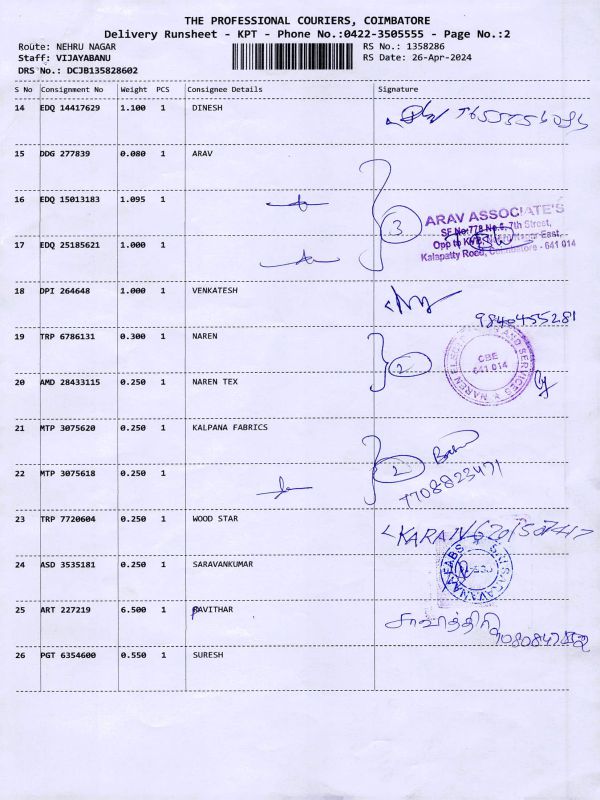 THE PROFESSIONAL COURIERS, COIMBATORE
Delivery Runsheet - KPT - Phone No.:0422-3505555 - Page No.:2
Route: NEHRU NAGAR RS No.: 1358286
Staff: VIJAYABANU RS Date: 26-Apr-2024
DRS No.: DCJB135828602
S No Consignment No Weight PCS Consignee Details Signature
14 EDQ 14417629 1.100 1 DINESH
15 DDG 277839 0.080 1 ARAV
16 EDQ 15013183 1.095 1
3
ARAV ASSOCIATE'S
SF No:778 No.6, 7th Street,
17 EDQ 25185621 1.000 1
Kalapatty Road, Coimbatore - 641 014
18 DPI 264648 1.000 1 VENKATESH
9840455281
19 TRP 6786131 0.300 1 NAREN
2
CBE
641 014
20 AMD 28433115 0.250 1 NAREN TEX
21 MTP 3075620 0.250 1 KALPANA FABRICS
2
7708823471
22 MTP 3075618 0.250 1
23 TRP 7720604 0.250 1 WOOD STAR
KARAN
24 ASD 3535181 0.250 1 SARAVANKUMAR
25 ART 227219 6.500 1 PAVITHAR
26 PGT 6354600 0.550 1 SURESH